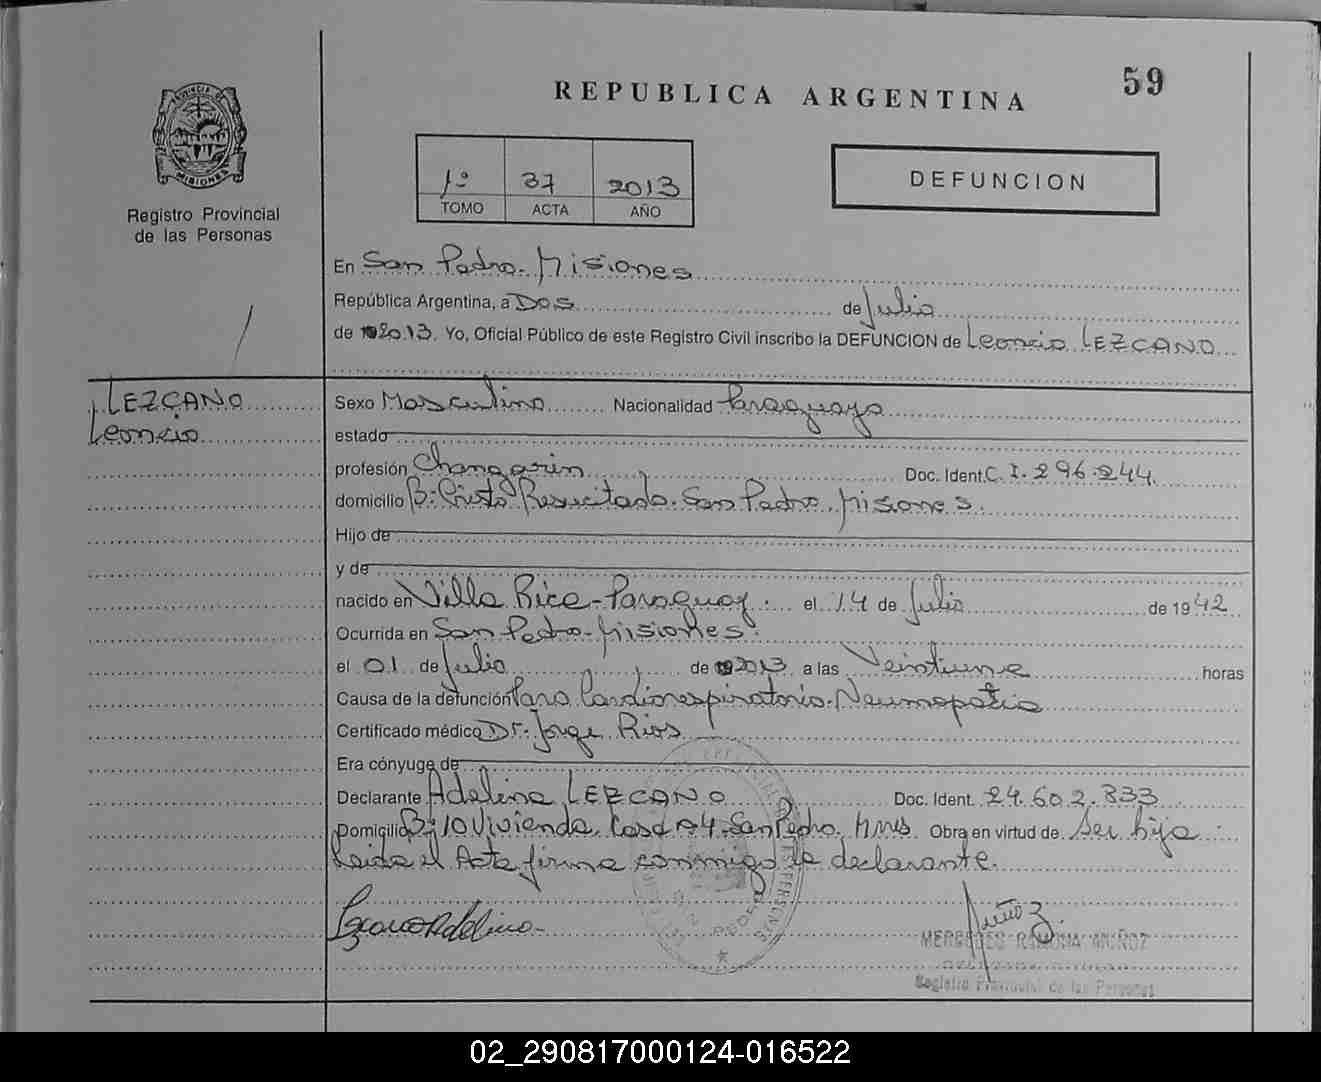 59
REPUBLICA ARGENTINA
PROVINCIA DE
MISIONES
1º 37 2013
TOMO ACTA AÑO
DEFUNCION
Registro Provincial
de las Personas
En San Pedro - Misiones
República Argentina, a Dos de Julio
de 2013. Yo, Oficial Público de este Registro Civil inscribo la DEFUNCION de Leoncio LEZCANO
LEZCANO
Leoncio
Sexo Masculino Nacionalidad Paraguaya
estado
profesión Changarin Doc. Ident. C.I. 296.244.
domicilio Bº Cristo Resucitado. San Pedro. Misiones.
Hijo de
y de
nacido en Villa Rica - Paraguay. el 14 de Julio de 1942
Ocurrida en San Pedro - Misiones.
el 01 de Julio de 2013 a las Veintiuna horas
Causa de la defunción Paro Cardiorespiratorio. Neumopatia
Certificado médico Dr. Jorge Rios
Era cónyuge de
Declarante Adelina LEZCANO Doc. Ident. 24.602.833
Domicilio Bº 10 Vivienda. Casa Nº4. San Pedro. Mnes Obra en virtud de Ser hija.
Leida el Acta firma conmigo la declarante.
Lezcano Adelina
Muñoz
MERCEDES RAMONA MUÑOZ
Registro Provincial de las Personas
02_290817000124-016522